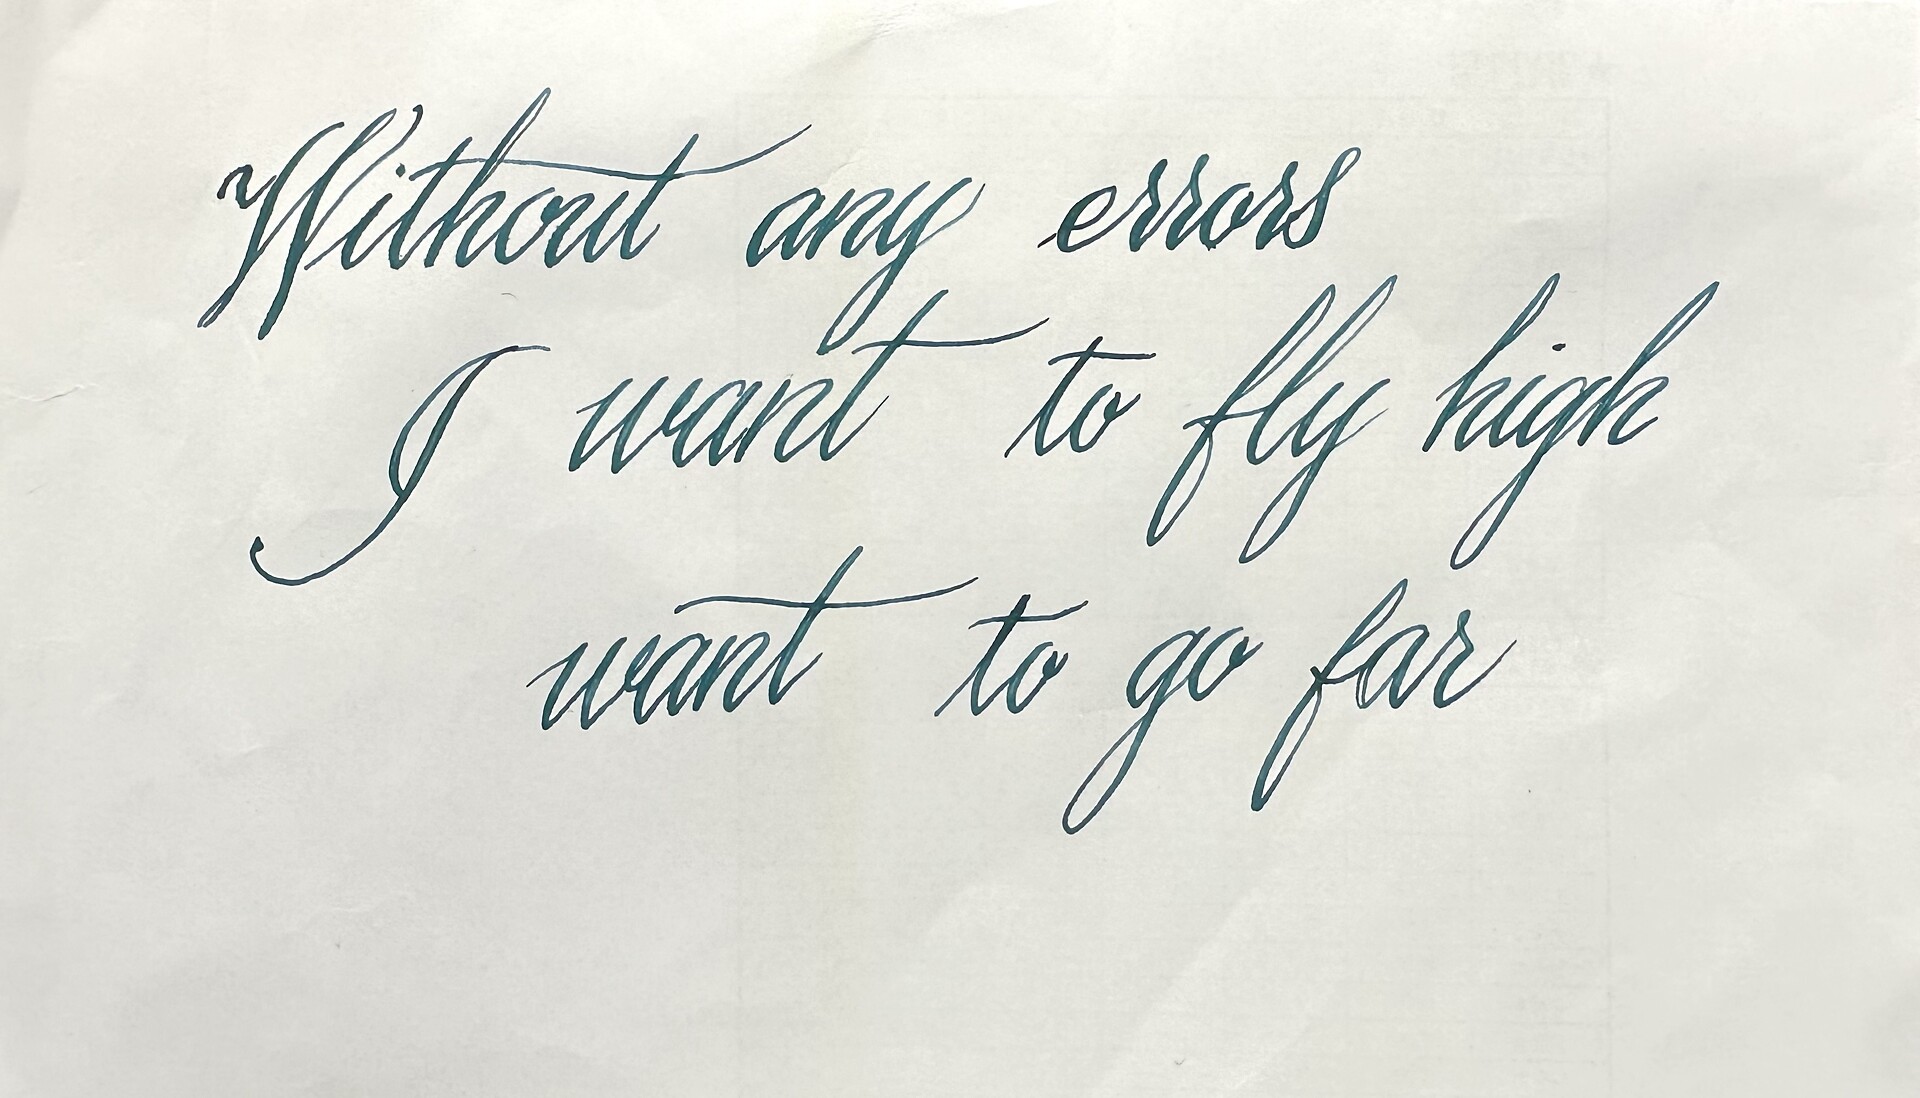 Without any errors
I want to fly high
want to go far